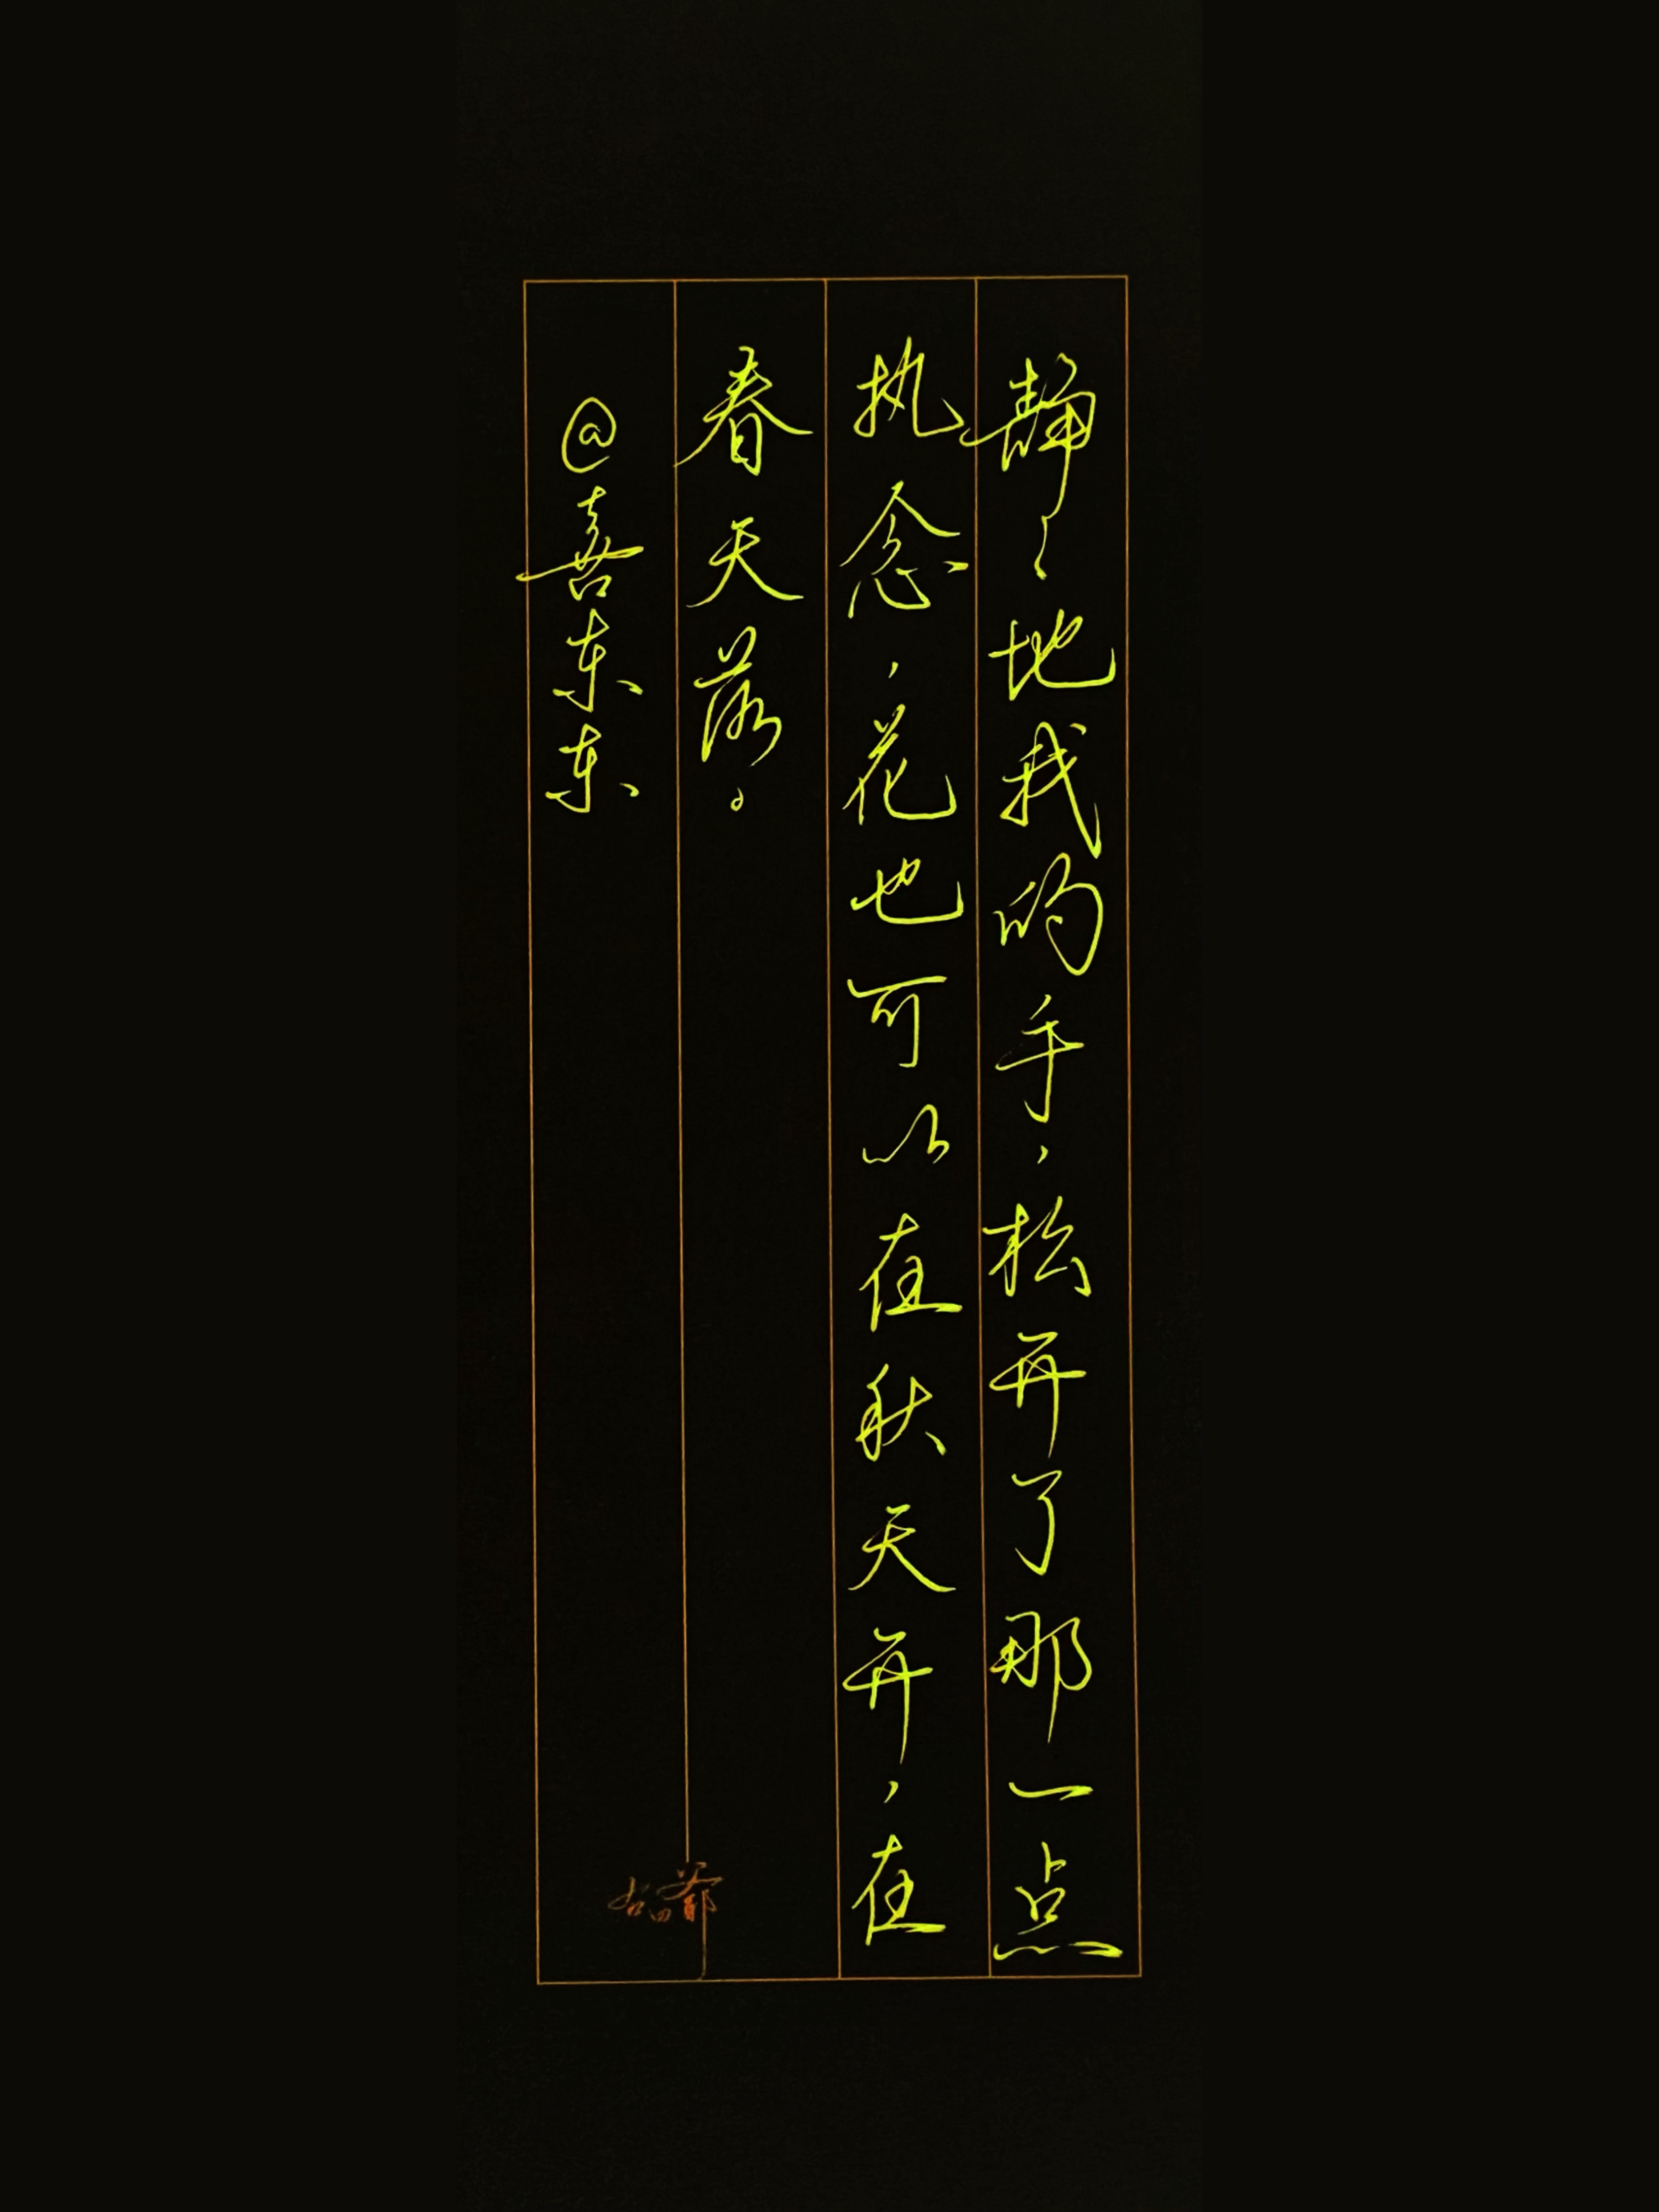 静々地我的手，松开了那一点
执念，花也可以在秋天开，在
春天落。
@喜东东